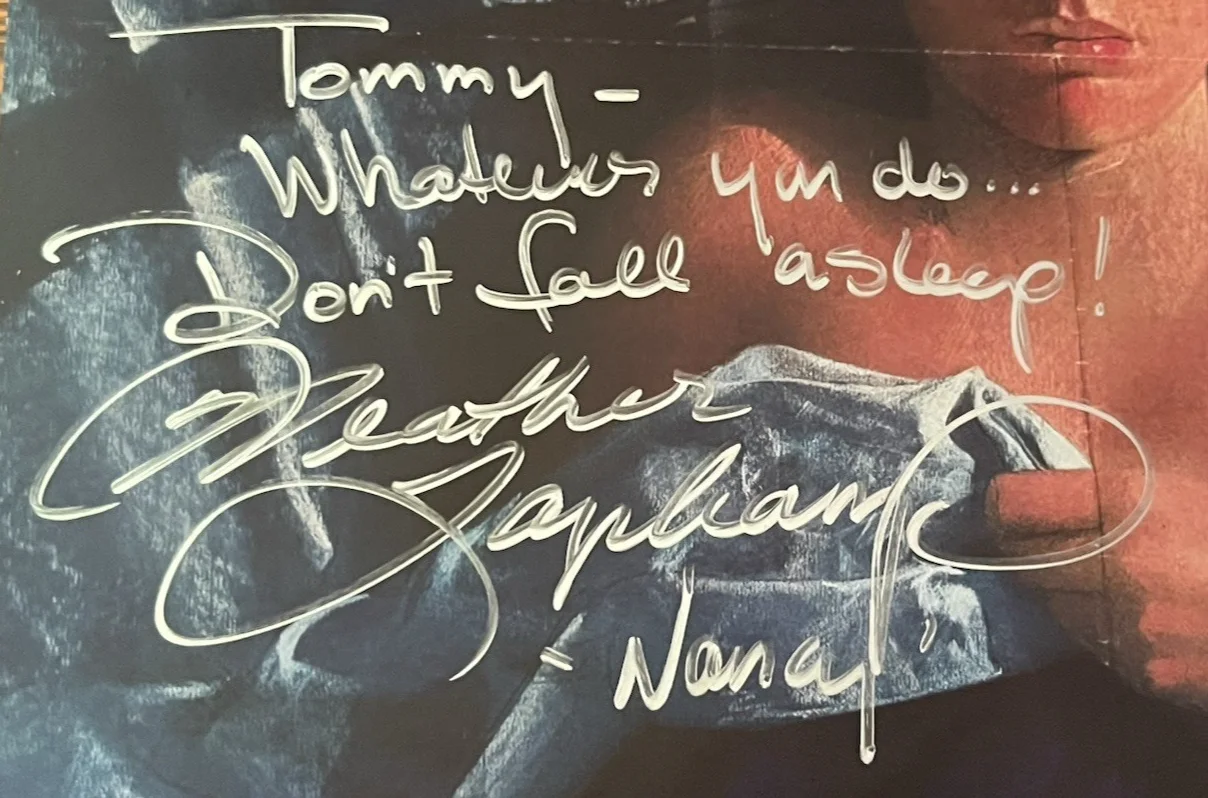 Tommy –
Whatever you do...
Don't fall asleep!
Heather
Langenkamp
- "Nancy"